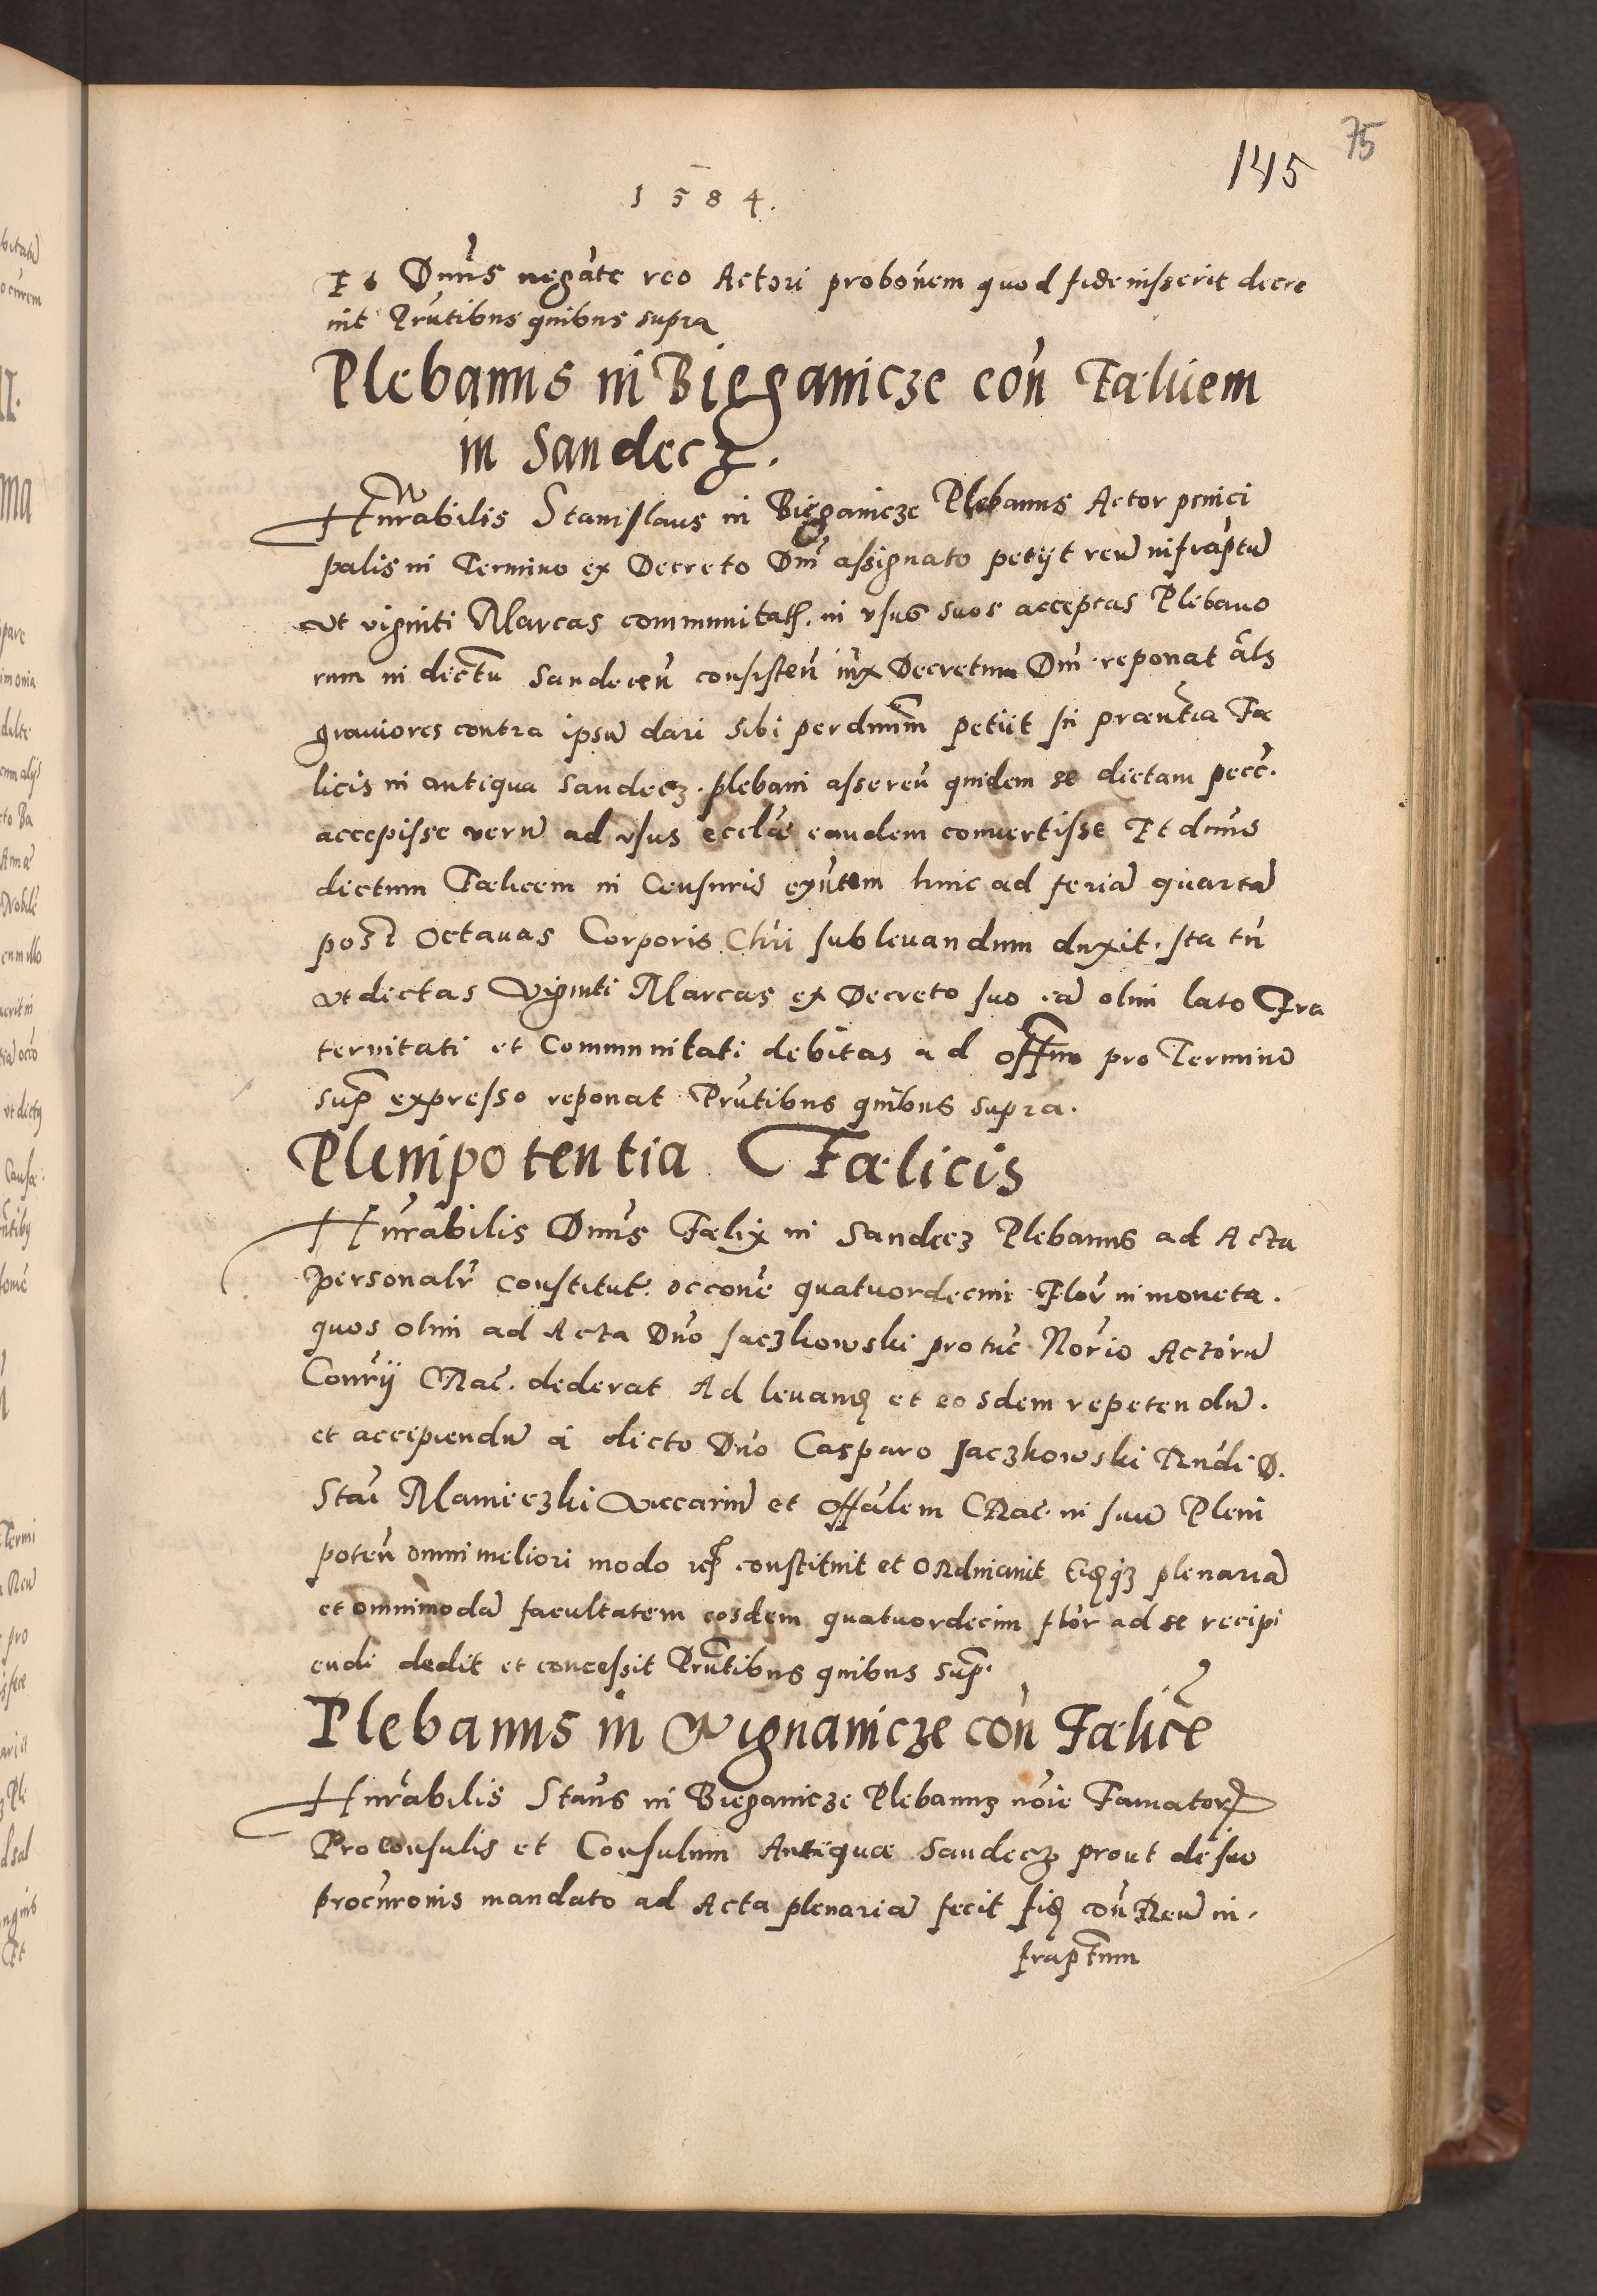 75
145
1584.
Et Dnūs negāte reo Actori probōnem quod fideiusserit decre
uit Prn̄tibus quibus supra
Plebanus in Bieganicze con̄ Fælicem
in Sandecz.
Hnr̄abilis Stanislaus in Bieganicze Plebanus Actor princi
palis in Termino ex Decreto Dnī assignato petijt reū infrap̄tū
vt viginti Marcas communitatis in vsus suos acceptas Plebano
rum in dictū Sandecen̄ consisten̄ iux̄ Decretum Dnī reponat āls
grauiores contra ipsū dari sibi per dnūm petiit In præn̄tia Fæ
licis in antiqua Sandecz plebani asseren̄ quidem se dictam pecc̄.
accepisse verū ad vsus ecclǣ eandem conuertisse Et dnūs
dictum Fælicem in Censuris exn̄tem hinc ad feriā quartā
post octauas Corporis Chr̄i subleuandum duxit. Ita tn̄
vt dictas Viginti Marcas ex Decreto suo eā olim lato Fra
ternitati et Communitati debitas ad offm̄ pro Termino
sup̄ expresso reponat Prn̄tibus quibus supra.
Plenipotentia Fælicis
Hnr̄abilis Dnūs Fælix in Sandecz Plebanus ad Acta
personalr̄ constitut. occōne quatuordecim Flor̄ in moneta.
quos olim ad Acta Dn̄o Jaczkowski protūc Nor̄io Actorū
Conr̄ij Crac̄. dederat Ad leuanđ et eosdem repetendū.
et accipiendū á dicto Dn̄o Casparo Jaczkowski Rn̄di D.
Staī Manieczki Viccariū et offālem Crac̄. in suū Pleni
poten̄ omni meliori modo constituit et ordinauit Eiđqȝ plenariā
et omnimodā facultatem eosdem quatuordecim flor̄ ad se recipi
endi dedit et concessit Prn̄tibus quibus sup̄.
Plebanus in Bignanicze con̄ Fælicē
Hnr̄abilis Staūs in Bieganicze Plebanus nōie Famator̄
Proconsulis et Consulum Antiquæ Sandecz prout de suo
procurōnis mandato ad Acta plenariā fecit fiđ con̄ Reū in
frap̄tum